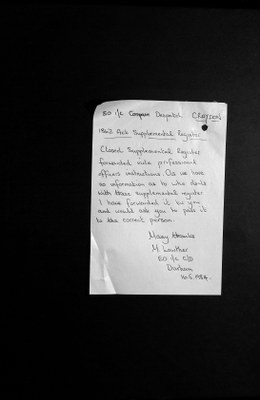 EO i/c Computer Despatch CROYDON
1962 Act Supplemental Register
Closed Supplemental Register
forwarded into professional
officers instructions. As we have
no information as to who deals
with these supplemental register
I have forwarded it to you
and would ask you to pass it
to the correct person.
Many thanks
M. Lowther
EO i/c C/S
Durham
16.5.1984.